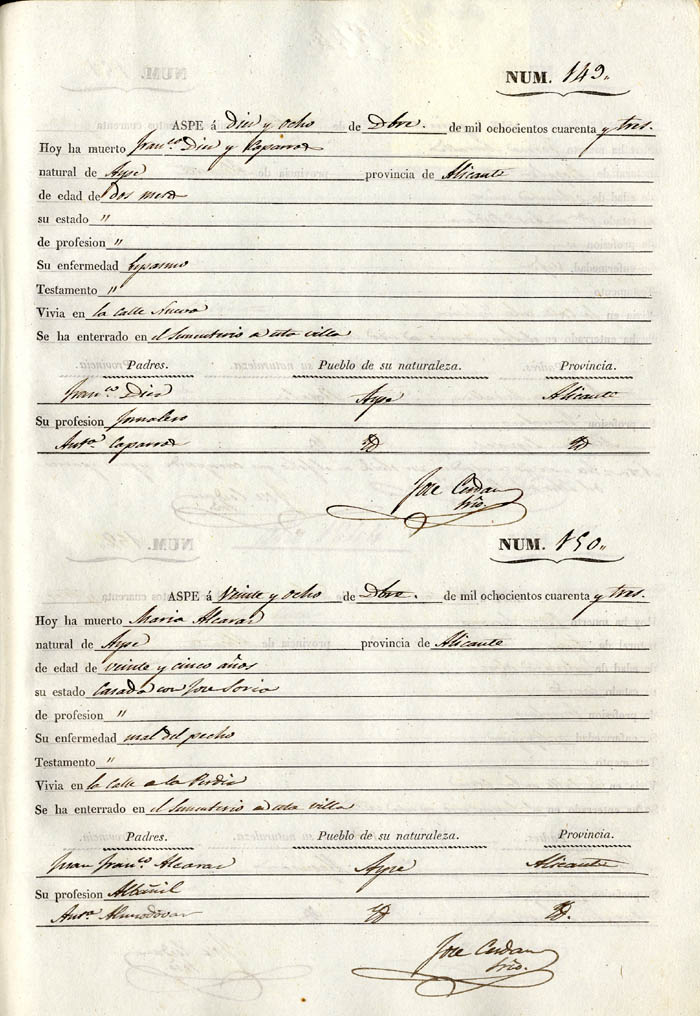 NUM. 149.
ASPE á Diez y ocho de Dbre. de mil ochocientos cuarenta y tres.
Hoy ha muerto Franco. Diez y Caparros
natural de Aspe provincia de Alicante
de edad de dos meses
su estado "
de profesion "
Su enfermedad Espasmo
Testamento "
Vivia en la Calle Nueva
Se ha enterrado en el Sementerio de esta villa
Padres. Pueblo de su naturaleza. Provincia.
Franco. Diez Aspe Alicante
Su profesion Jornalero
Anta. Caparros Yd Yd.
Jose Cerdan
Srio.
NUM. 150.
ASPE á Veinte y ocho de Dbre. de mil ochocientos cuarenta y tres.
Hoy ha muerto Maria Alcaraz
natural de Aspe provincia de Alicante
de edad de veinte y cinco años
su estado Casada con Jose Soria
de profesion "
Su enfermedad mal del pecho
Testamento "
Vivia en la Calle de la
Se ha enterrado en el Sementerio de esta villa
Padres. Pueblo de su naturaleza. Provincia.
Juan Franco. Alcaraz Aspe Alicante
Su profesion Albañil
Anta. Almodovar Yd Yd.
Jose Cerdan
Srio.